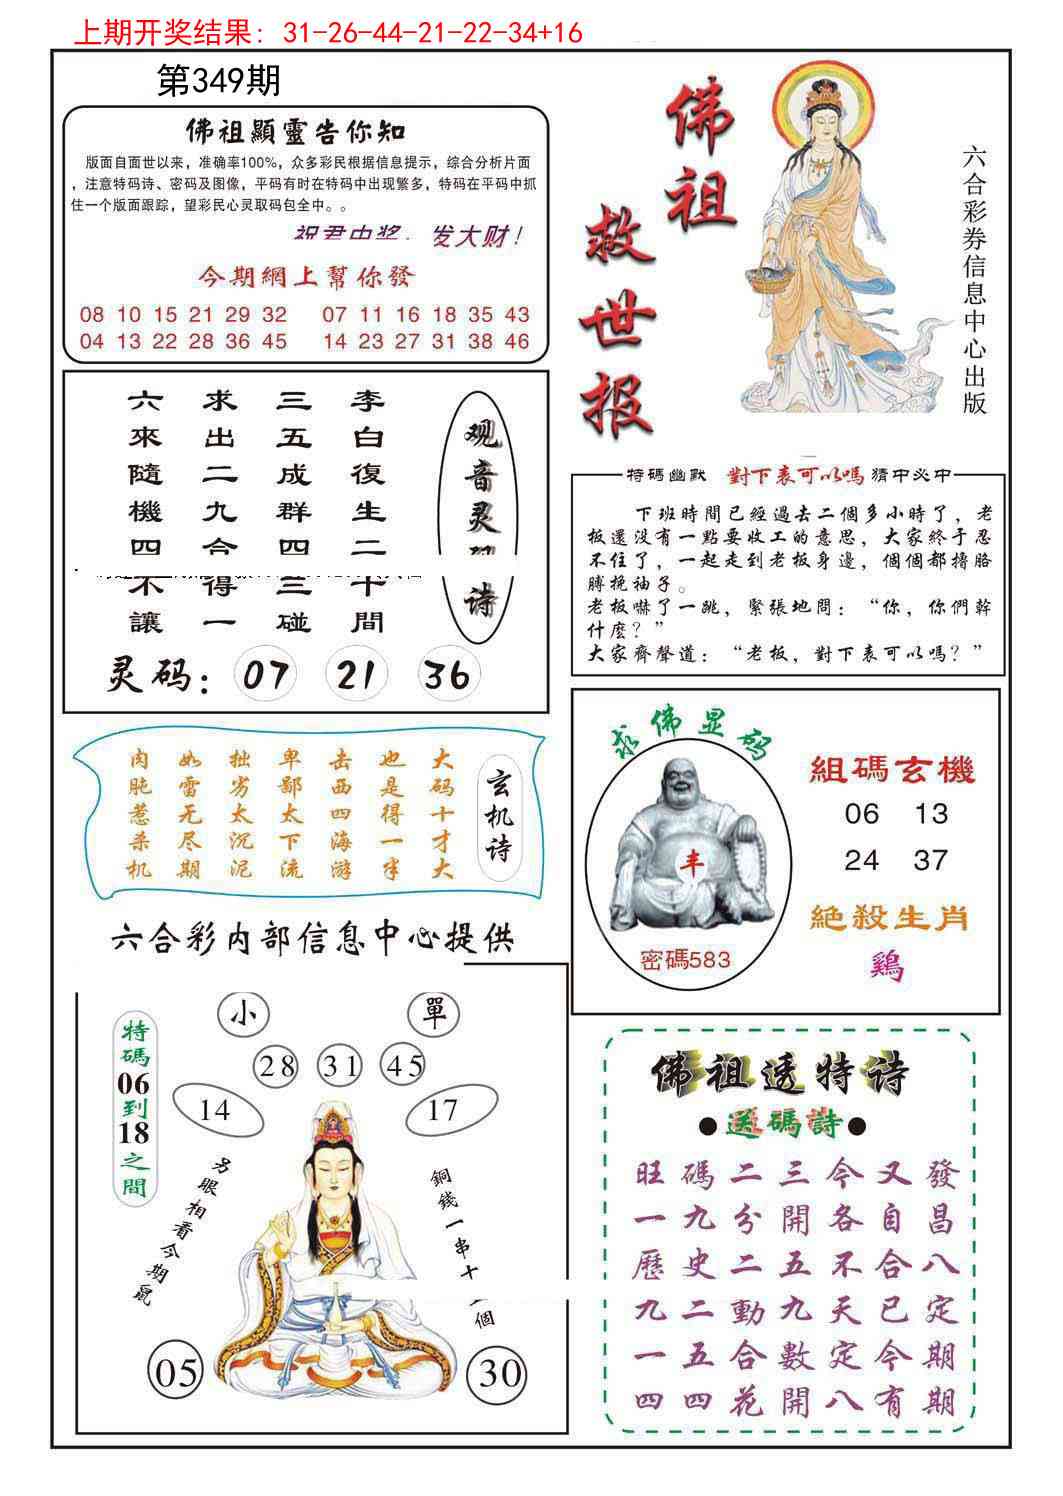 上期开奖结果：31-26-44-21-22-34+16
第349期
佛祖顯靈告你知
版面自面世以来，准确率100%，众多彩民根据信息提示，综合分析片面
，注意特码诗、密码及图像，平码有时在特码中出现繁多，特码在平码中抓
住一个版面跟踪，望彩民心灵取码包全中。。
祝君中奖，发大财！
今期網上幫你發
08 10 15 21 29 32 07 11 16 18 35 43
04 13 22 28 36 45 14 23 27 31 38 46
佛祖
救世报
六合彩券信息中心出版
观音灵 诗
李白復生二十間
三五成群四三碰
求出二九合得一
六來隨機四不讓
灵码：07 21 36
特碼幽默 對下表可以嗎 猜中必中
下班時間已經過去二個多小時了，老
板還没有一點要收工的意思，大家終于忍
不住了，一起走到老板身邊，個個都擼胳
膊挽袖子。
老板嚇了一跳，緊張地問：“你，你們幹
什麽？”
大家齊聲道：“老板，對下表可以嗎？”
玄机诗
大码十才大
也是得一半
击西四海游
卑鄙太下流
拙劣太沉泥
如雷无尽期
肉肫惹杀机
求佛显码
丰
密碼583
組碼玄機
06 13
24 37
絶殺生肖
鷄
六合彩内部信息中心提供
小 單
28 31 45
14 17
特碼06到18之間
另眼相看今期鼠
銅錢一串十 個
05 30
佛祖透特诗
●送碼詩●
旺碼二三今又發
一九分開各自昌
歷史二五不合八
九二動九天已定
一五合數定今期
四四花開八有期